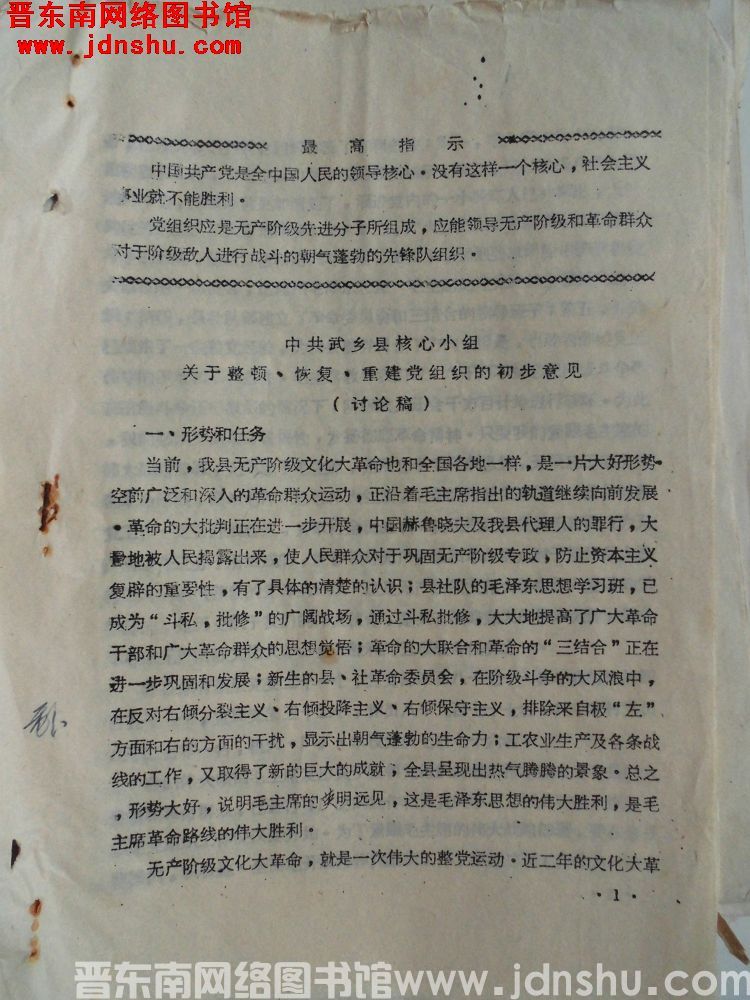 晋东南网络图书馆
www.jdnshu.com
最高指示
中国共产党是全中国人民的领导核心。没有这样一个核心，社会主义
事业就不能胜利。
党组织应是无产阶级先进分子所组成，应能领导无产阶级和革命群众
对于阶级敌人进行战斗的朝气蓬勃的先锋队组织。
中共武乡县核心小组
关于整顿、恢复、重建党组织的初步意见
（讨论稿）
一、形势和任务
当前，我县无产阶级文化大革命也和全国各地一样，是一片大好形势。
空前广泛和深入的革命群众运动，正沿着毛主席指出的轨道继续向前发展
。革命的大批判正在进一步开展，中国赫鲁晓夫及我县代理人的罪行，大
量地被人民揭露出来，使人民群众对于巩固无产阶级专政，防止资本主义
复辟的重要性，有了具体的清楚的认识；县社队的毛泽东思想学习班，已
成为“斗私，批修”的广阔战场，通过斗私批修，大大地提高了广大革命
干部和广大革命群众的思想觉悟；革命的大联合和革命的“三结合”正在
进一步巩固和发展；新生的县、社革命委员会，在阶级斗争的大风浪中，
在反对右倾分裂主义、右倾投降主义、右倾保守主义，排除来自极“左”
方面和右的方面的干扰，显示出朝气蓬勃的生命力；工农业生产及各条战
线的工作，又取得了新的巨大的成就；全县呈现出热气腾腾的景象。总之
，形势大好，说明毛主席的英明远见，这是毛泽东思想的伟大胜利，是毛
主席革命路线的伟大胜利。
无产阶级文化大革命，就是一次伟大的整党运动。近二年的文化大革
·1·
晋东南网络图书馆www.jdnshu.com